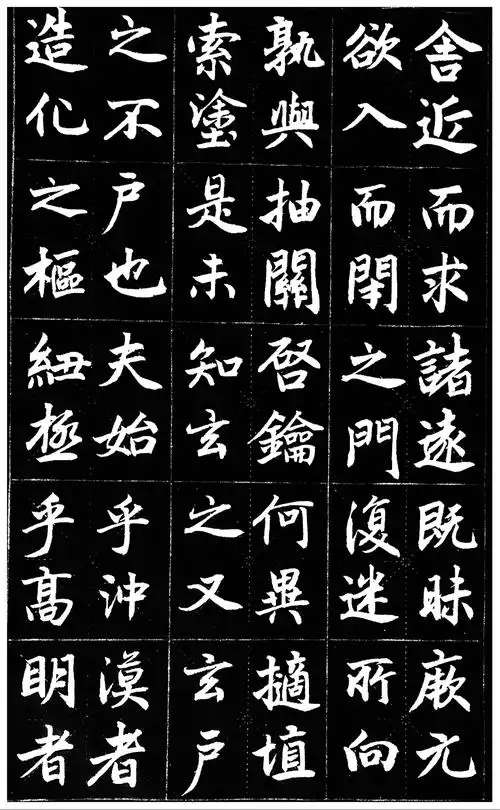 舍近而求諸遠既昧厥元
欲入而閇之門復迷所向
孰與抽關啓鑰何異擿埴
索塗是未知玄之又玄户
之不户也夫始乎沖漠者
造化之樞紐極乎髙明者